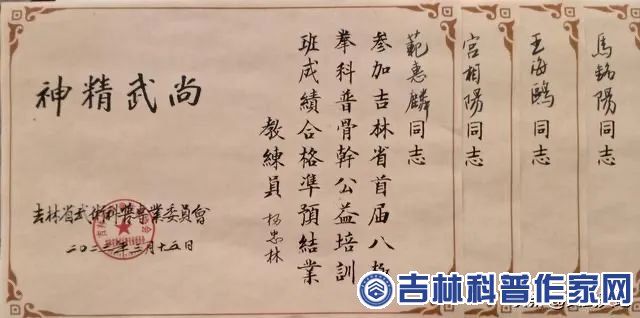 馬銘陽同志
王海鷗同志
宮相陽同志
範惠麟同志
參加吉林省首届八極
拳科普骨幹公益培訓
班成績合格準預結業
教練員 杨忠林
尚武精神
吉林省武術科普專業委員會
二〇二二年三月十五日
吉林科普作家网